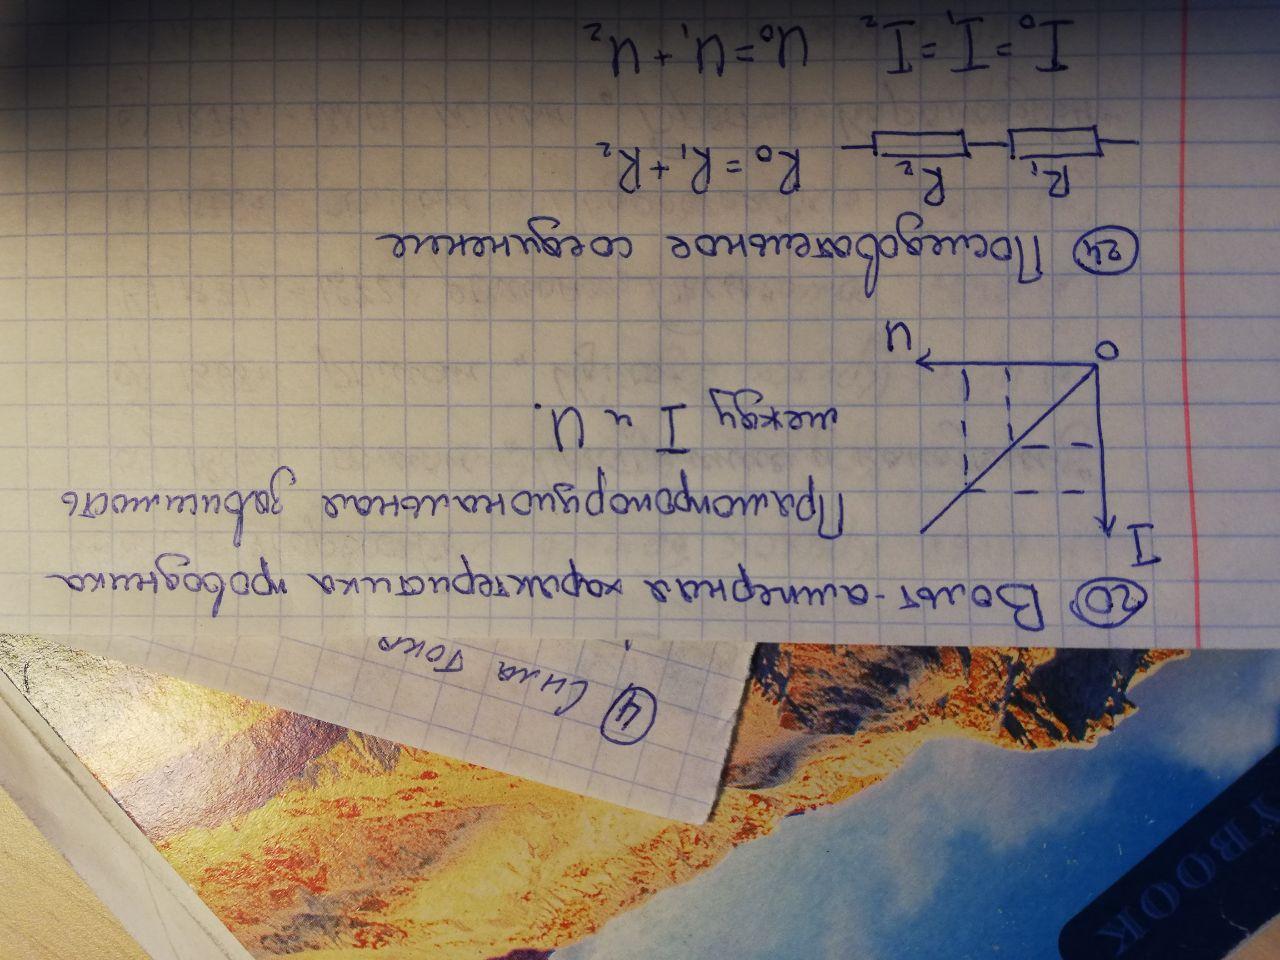 YBOOK
4 Сила тока
20 Вольт-амперная характеристика проводника
I
Прямопропорциональная зависимость
между I и U.
0
U
24 Последовательное соединение
R₁ R₂ R₀ = R₁ + R₂
I₀ = I₁ = I₂ U₀ = U₁ + U₂